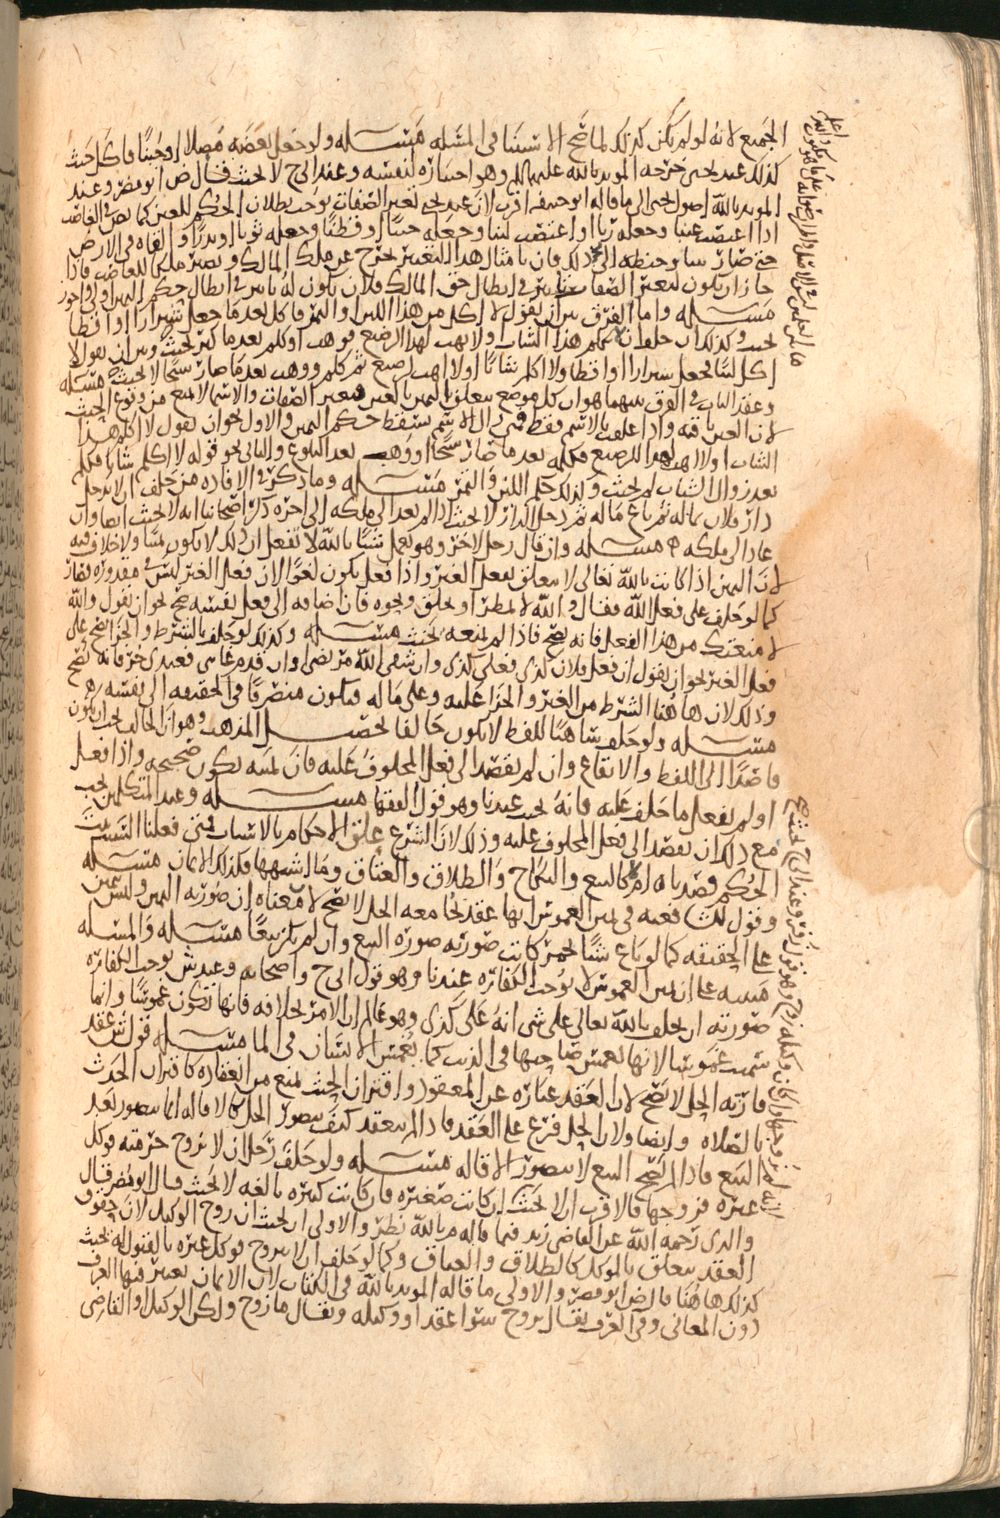 الجميع لانه لو لم يكن كذلك لما صح الاستثنا في المسله مسله ولو جعل بعضه مصلا او جبنا فاكل حنث
كذلك عند يحيى خرجه المويد بالله عليهما السلم وهو اختياره لنفسه وعند ابي ح لا يحنث قال ص ابو مضر وعند
المويد بالله اصول يحيى الى ما قاله ابو حنيفه اقرب لان عند يحيى تغير الصفات يوجب بطلان الحكم للعين كما نص في الغاصب
اذا اغتصب عنبا وجعله زبيبا او اغتصب لبنا وجعله جبنا او قطنا وجعله ثوبا او بذرا والقاه في الارض
حتى صار نباتا وحنطه الى ذلك فان بامثال هذا التغيير يخرج عن ملك المالك ويصير ملكا للغاصب فاذا
جاز ان يكون لتغير الصفات تاثير في ابطال حق المالك فلان يكون له تاثير في ابطال حكم اليمين اولى واجوز
مسله واما الفرق بين ان يقول لا اكل من هذا اللبن او التمر فاكل بعد ما جعل شيرازا او اقطا
يحنث وكذلك ان حلف لا يكلم هذا الشاب ولا يهب لهذا الرضيع فوهب او كلم بعد ما كبر يحنث وبين ان يقول لا
اكل لبنا فجعل شيرازا او اقطا ولا اكلم شابا او لا اهب لرضيع ثم كلم ووهب بعد ما صار شيخا لا يحنث مسله
وعقد الباب في الفرق بينهما هو ان كل موضع يتعلق اليمين بالعين فتغير الصفات والاسم لا يمنع من وقوع الحنث
لان العين باقيه واذا علقت بالاسم فقط فمتى زال الاسم سقط حكم اليمين والاول نحو ان يقول لا اكلم هذا
الشاب او لا اهب لهذا الرضيع فكلمه بعد ما صار شيخا او وهب بعد البلوغ والثاني نحو قوله لا اكلم شابا فكلم
بعد زوال الشباب لم يحنث وكذلك حكم اللبن والتمر مسله وما ذكر في الافاده من حلف ان لا يدخل
دار فلان بماله ثم باع ماله ثم دخل الدار لا يحنث اذا لم يعد الى ملكه الى اخره ذكر اصحابنا انه لا يحنث ايضا وان
عاد الى ملكه مسله وان قال رجل لاخر وهو يعمل شيا بالله لا تفعل ان ذلك لا يكون يمينا ولا خلاف فيه
لان اليمين اذا كانت بالله تعالى لا يتعلق بفعل الغير واذا فعل يكون لغوا لان فعل الغير ليس في مقدوره فصار
كما لو حلف على فعل الله فقال والله لا تمطر او يخلق ونحوه فان اضافه الى فعل نفسه صح نحو ان يقول والله
لا منعتك من هذا الفعل فانه يصح فاذا لم يمنعه يحنث مسله وكذلك لو حلف بالشرط والجزا يصح على
فعل الغير نحو ان يقول ان فعل فلان كذى فعلي كذى وان شفى الله مريضي او ان قدم غايبي فعبدي حر فانه يصح
وذلك لان ها هنا الشرط من الغير والجزا عليه وعلى ماله فيكون منصرفا في الحقيقه الى نفسه
مسله ولو حلف ساهيا للفظ لا يكون حالفا تحصيل المذهب وهو ان الحالف يجب ان يكون
قاصدا الى اللفظ والايقاع وان لم يقصد الى فعل المحلوف عليه فان يمينه يكون صحيحه واذا فعل
او لم يفعل ما حلف عليه فانه يحنث عندنا وهو قول الفقها مسله وعند المتكلمين يجب
مع ذلك ان يقصد الى فعل المحلوف عليه وذلك لان الشرع علق الاحكام بالاسباب فمتى فعلنا السبب ثبت
الحكم قصدناه ام لا كالبيع والنكاح والطلاق والعتاق وما اشبهها فكذلك الايمان مسله
وقول الشافعيه في يمين الغموس انها عقد يجامعه الحل لا يصح لان معناه ان صورته اليمين وليس يمين
على الحقيقه كما لو باع شيا بخمر كانت صورته صوره البيع وان لم يكن بيعا مسله والمسله
مبنيه على ان يمين الغموس لا يوجب الكفاره عندنا وهو قول ابي ح واصحابه وعند ش يوجب الكفاره
صورته ان يحلف بالله تعالى على شي انه على كذى وهو عالم ان الامر بخلافه فانها تكون غموسا وانما
سميت غموسا لانها تغمس صاحبها في الذنب كما يغمس الانسان في الما مسله قول ش عقد
قارنه الحل لا يصح لان العقد عباره عن المعقود واقتران الحنث يمنع من انعقاده كاقتران الحدث
بالصلاه وايضا ولان الحل فرع على العقد فاذا لم ينعقد كيف يتصور الحل كالاقاله انما يتصور بعد
البيع فاذا لم يصح البيع لا يتصور الاقاله مسله ولو حلف رجل ان لا يزوج حرمته فوكل
غيره فزوجها فالاقرب ان لا يحنث ان كانت صغيره فان كانت كبيره بالغه لا يحنث قال ابو مضر قال
والدي رحمه الله عن القاضي زيد فيما قاله م بالله نظر والاولى ان يحنث ان زوج الوكيل لان حقوق
العقد يتعلق بالموكل كالطلاق والعتاق وكما لو حلف ان لا يتزوج فوكل غيره بالقبول له يحنث
كذلك ها هنا قال ص ابو مضر والاولى ما قاله المويد بالله في الكتاب لان الايمان يعتبر فيها العرف
دون المعاني وفي العرف يقال يزوج سوا عقد او وكيله ويقال ما زوج ولكن الوكيل او القاضي